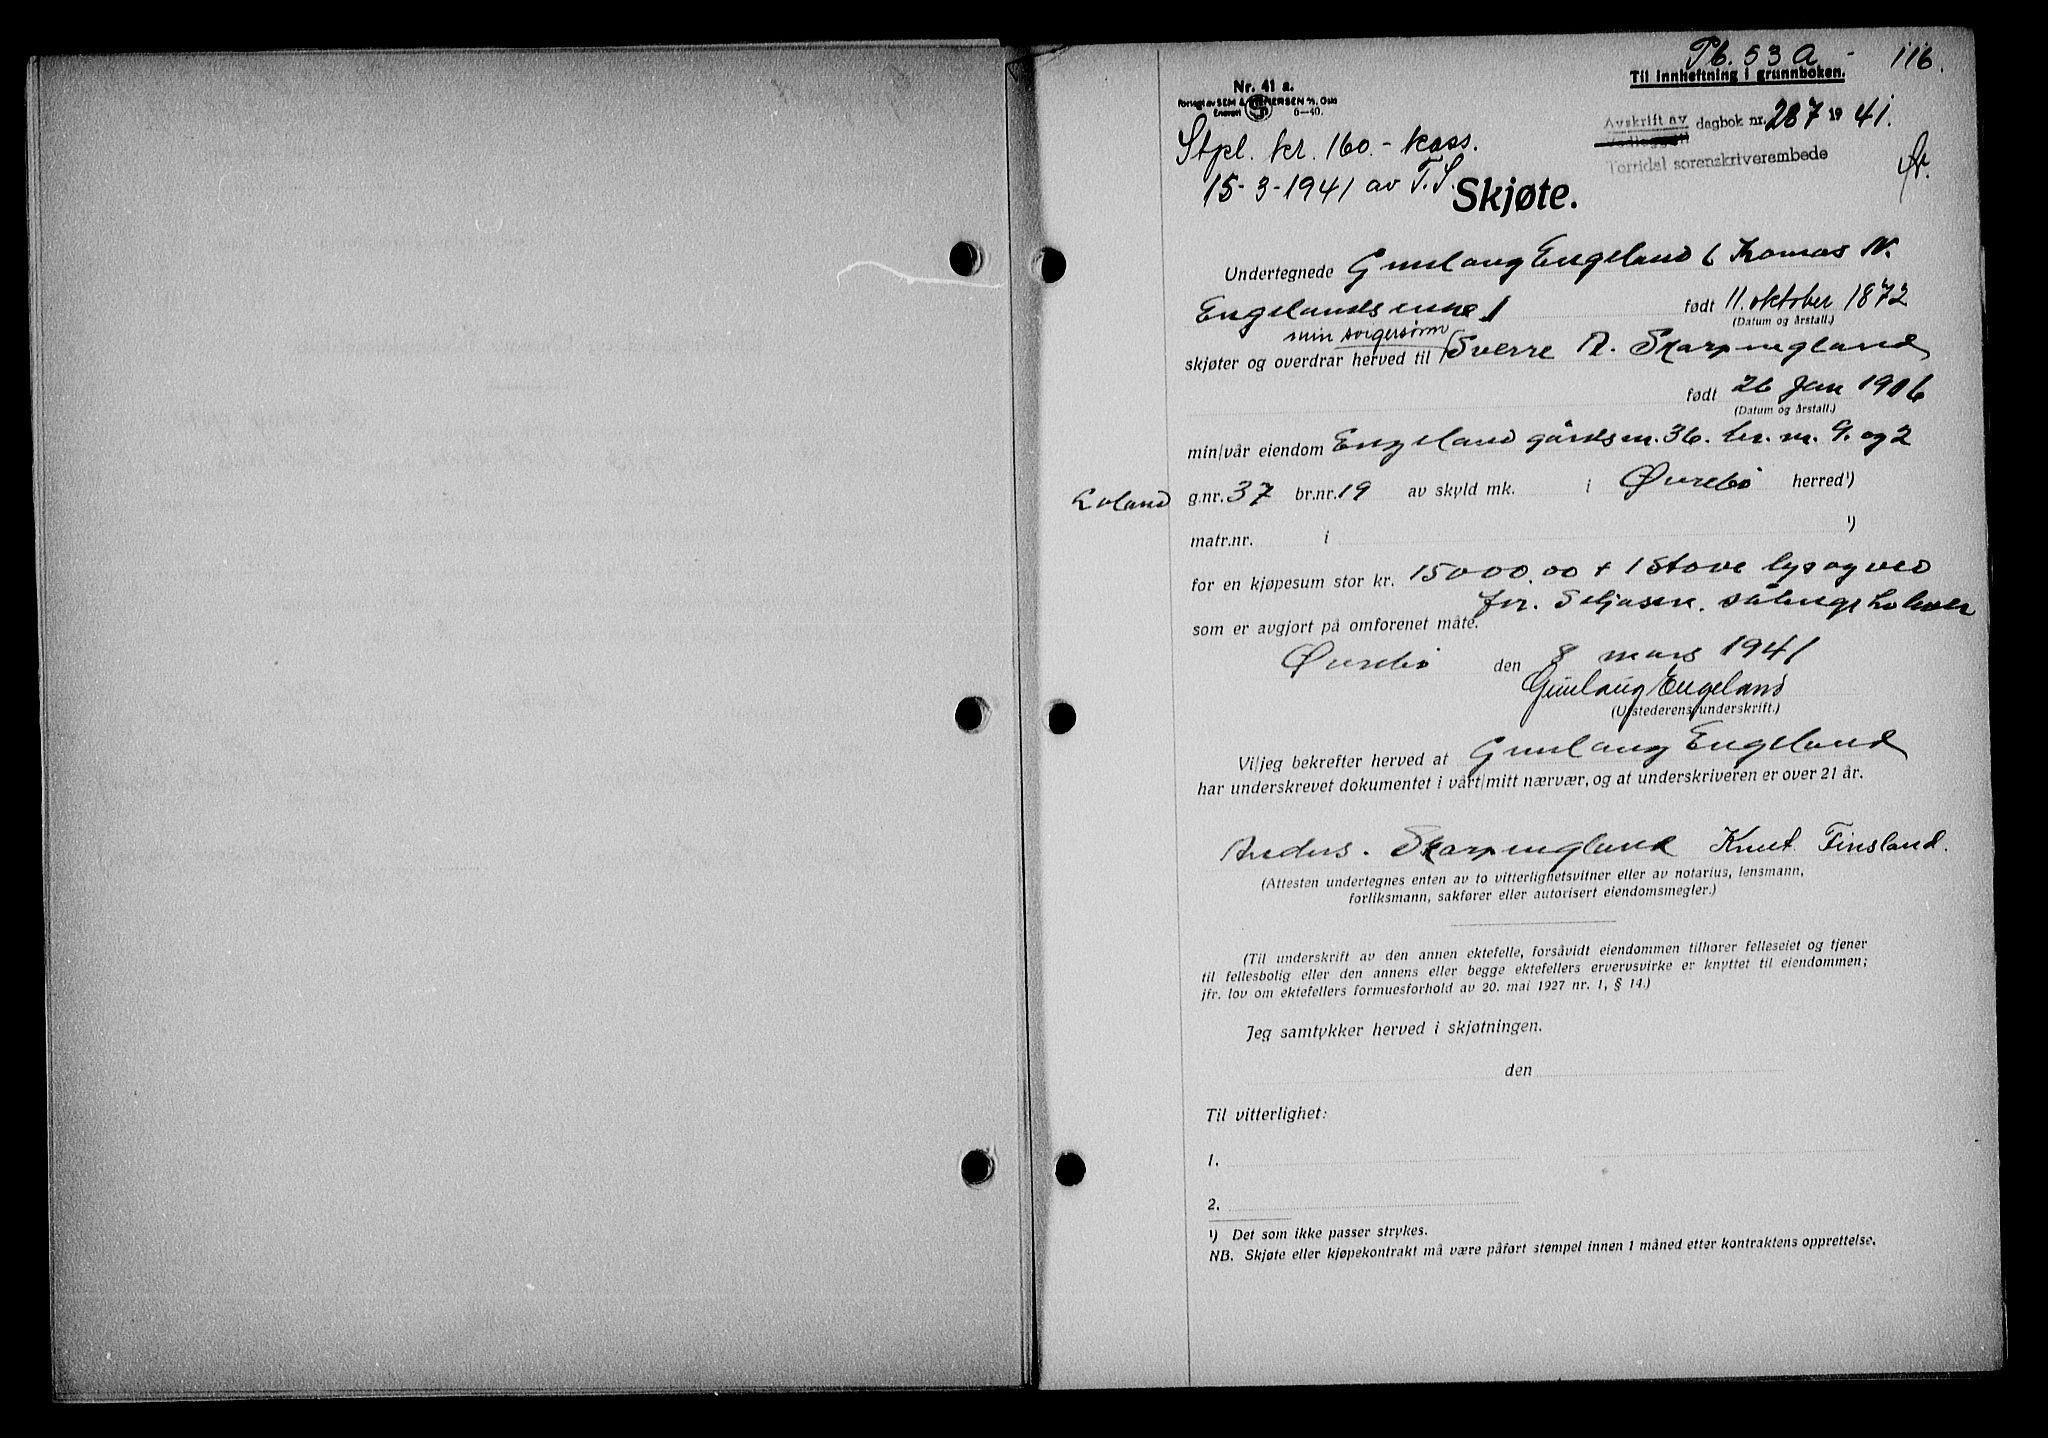 Pb. 53 A - 116.
Til innheftning i grunnboken.
Nr. 41 a.
Forlagt av SEM & STENERSEN A/S, Oslo
Enerett 6—40.
Avskrift av dagbok nr. 287 1941.
Torridal sorenskriverembede
Stpl. kr. 160.- kass.
15-3-1941 av T.S.
Skjøte.
Undertegnede Gunlaug Engeland ( Tomas N.
Engelands enke ) født 11. oktober 1872
(Datum og årstall.)
min svigersønn
skjøter og overdrar herved til Sverre A. Skarpengland
født 26 Jan 1906
(Datum og årstall.)
min/vår eiendom Engeland gårds nr. 36. br. nr. 9. og 2
Loland g.nr. 37 br.nr. 19 av skyld mk. i Øvrebø herred¹)
matr.nr. i ¹)
for en kjøpesum stor kr. 15000.00 + 1 Stove lys og ved
som er avgjort på omforenet måte.
Øvrebø den 8 mars 1941
Gunlaug Engeland
(Utstederens underskrift.)
Vi/jeg bekrefter herved at Gunlaug Engeland
har underskrevet dokumentet i vårt/mitt nærvær, og at underskriveren er over 21 år.
Anders. Skarpengland Knut Finsland.
(Attesten undertegnes enten av to vitterlighetsvitner eller av notarius, lensmann,
forliksmann, sakfører eller autorisert eiendomsmegler.)
(Til underskrift av den annen ektefelle, forsåvidt eiendommen tilhører felleseiet og tjener
til fellesbolig eller den annens eller begge ektefellers ervervsvirke er knyttet til eiendommen;
jfr. lov om ektefellers formuesforhold av 20. mai 1927 nr. 1, § 14.)
Jeg samtykker herved i skjøtningen.
den
Til vitterlighet:
1.
2.
¹) Det som ikke passer strykes.
NB. Skjøte eller kjøpekontrakt må være påført stempel innen 1 måned etter kontraktens opprettelse.